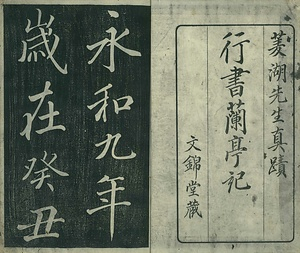 菱湖先生真蹟
行書蘭亭記
文錦堂蔵
永和九年
歳在癸丑